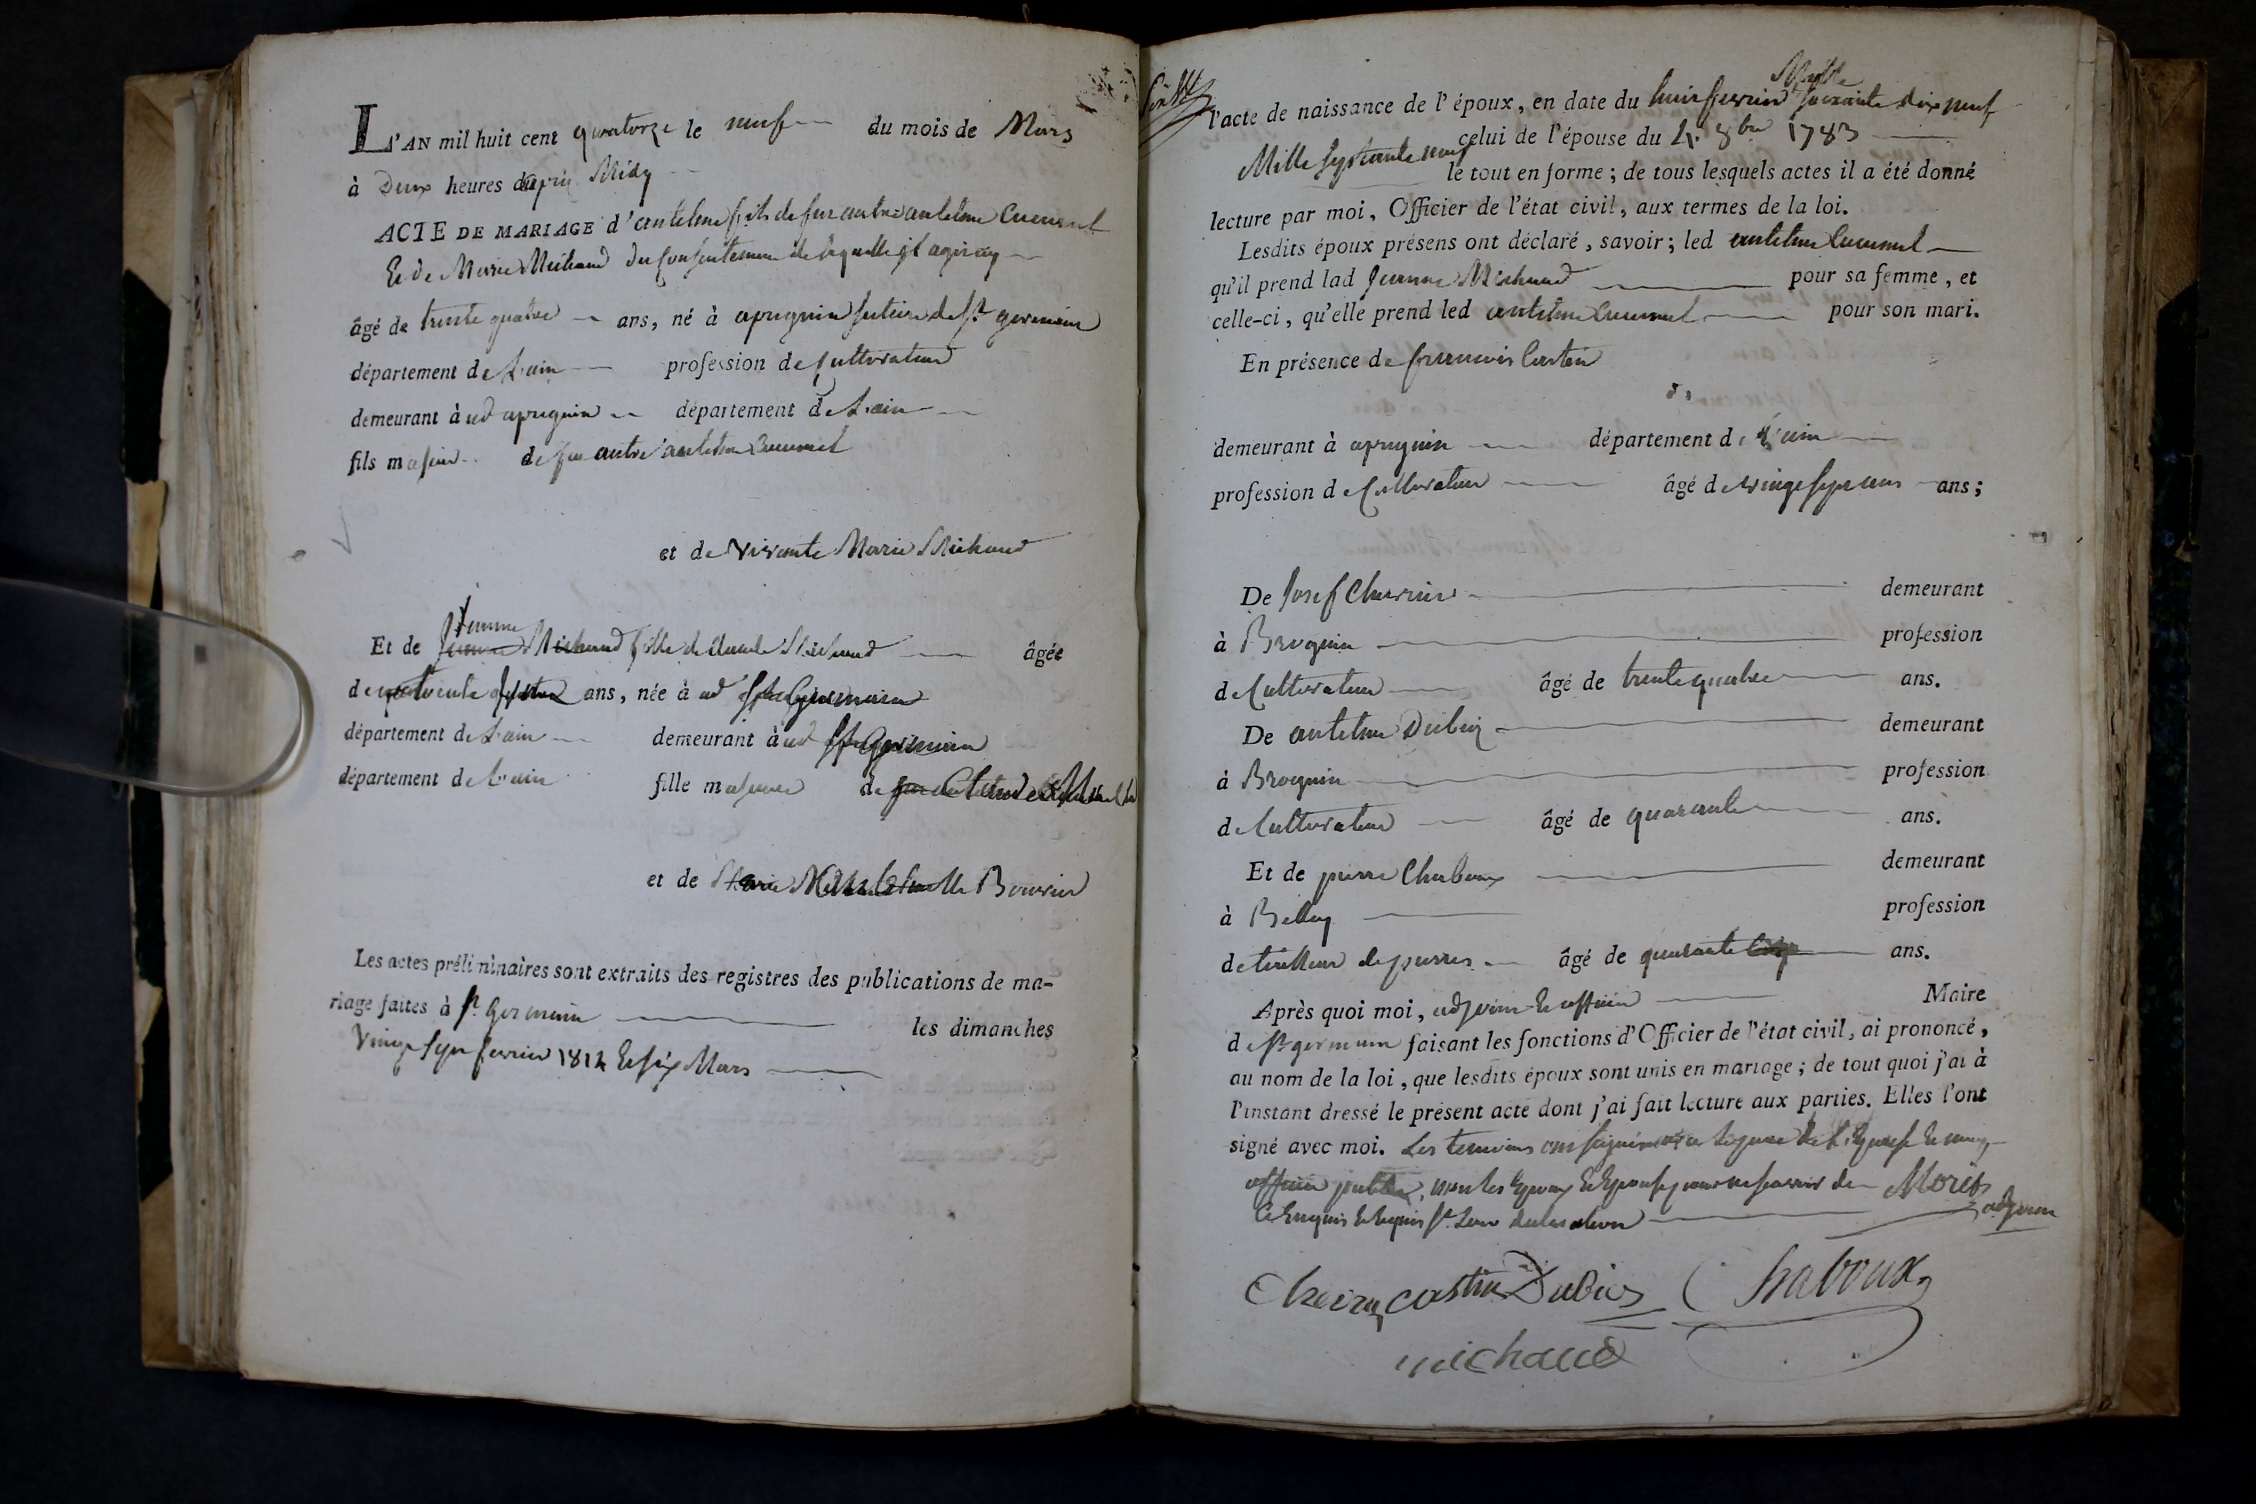 L'AN mil huit cent quatorze le neuf du mois de Mars
à Deux heures d'après Midy
ACTE DE MARIAGE d'antelme fils de feu autre antelme
Et de Marie Michaud du Consentement de laquelle il
âgé de trente quatre ans, né à apregnin de St germain
département de L'ain profession de Cultivateur
demeurant à ud apregnin département de L'ain
fils majeur de feu autre antelme
et de vivante Marie Michaud
Jeanne
Et de Michaud fille de Claude Michaud âgée
de trente ans, née à ud St Germain
département de L'ain demeurant à ud St Germain
département de L'ain fille majeure de feu Claude
et de Bouvier
Les actes préliminaires sont extraits des registres des publications de ma-
riage faites à St Germain les dimanches
Vingt Sept fevrier 1814 Et six Mars
l'acte de naissance de l'époux, en date du huit fevrier Mille soixante dix neuf
celui de l'épouse du 4. 8bre 1783
Mille Septante neuf
le tout en forme ; de tous lesquels actes il a été donné
lecture par moi, Officier de l'état civil, aux termes de la loi.
Lesdits époux présens ont déclaré, savoir ; led antelme
qu'il prend lad Jeanne Michaud pour sa femme, et
celle-ci, qu'elle prend led antelme pour son mari.
En présence de francois Castin
demeurant à apregnin département de L'ain
profession de Cultivateur âgé de vingt sept ans ans ;
De Josef demeurant
à Brognin profession
de Cultivateur âgé de trente quatre ans.
De antelme Dubuis demeurant
à Brognin profession
de Cultivateur âgé de quarante ans.
Et de pierre Chaboux demeurant
à Belley profession
de tailleur de pierres âgé de quarante ans.
Après quoi moi, adjoint Et officier Maire
de St germain faisant les fonctions d'Officier de l'état civil, ai prononcé,
au nom de la loi, que lesdits époux sont unis en mariage ; de tout quoi j'ai à
l'instant dressé le présent acte dont j'ai fait lecture aux parties. Elles l'ont
signé avec moi. Les temoins ont signé
officier public, non les Epoux Et Epouse pour ne savoir de
Ce Enquis Et requis St Leur declaration adjoint
Castin Dubuis Chaboux
michaud